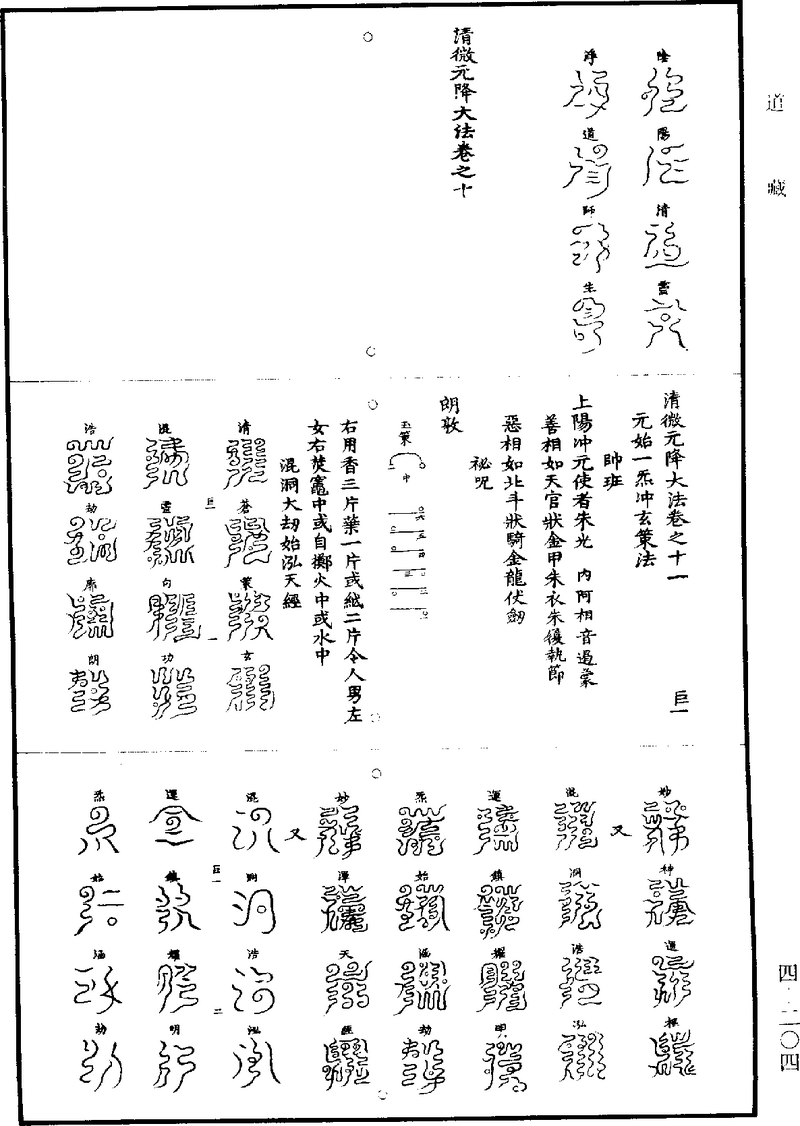 道藏
陰 陽 清 靈
淨 道 師 生
清微元降大法卷之十
清微元降大法卷之十一
巨一
元始一炁沖玄策法
帥班
上陽沖元使者朱光 內阿相音邉蒙
善相如天官狀金甲朱衣朱履執節
惡相如北斗狀騎金龍伏劒
祕呪
朗敦
玉策
中
右用香三片葉一片或紙二片令人男左
女右焚竈中或自擲火中或水中
混洞大劫始泓天經
清 蒼 策 玄
混 靈 向 功
巨一
一
浩 劫 席 朗
妙 神 運
又
混 洞 浩 泓
運 鎮 耀 明
炁 始 涵 劫
妙 渾 天 經
又
混 洞 浩 泓
巨一
二
運 鎮 耀 明
炁 始 涵 劫
四·二〇四